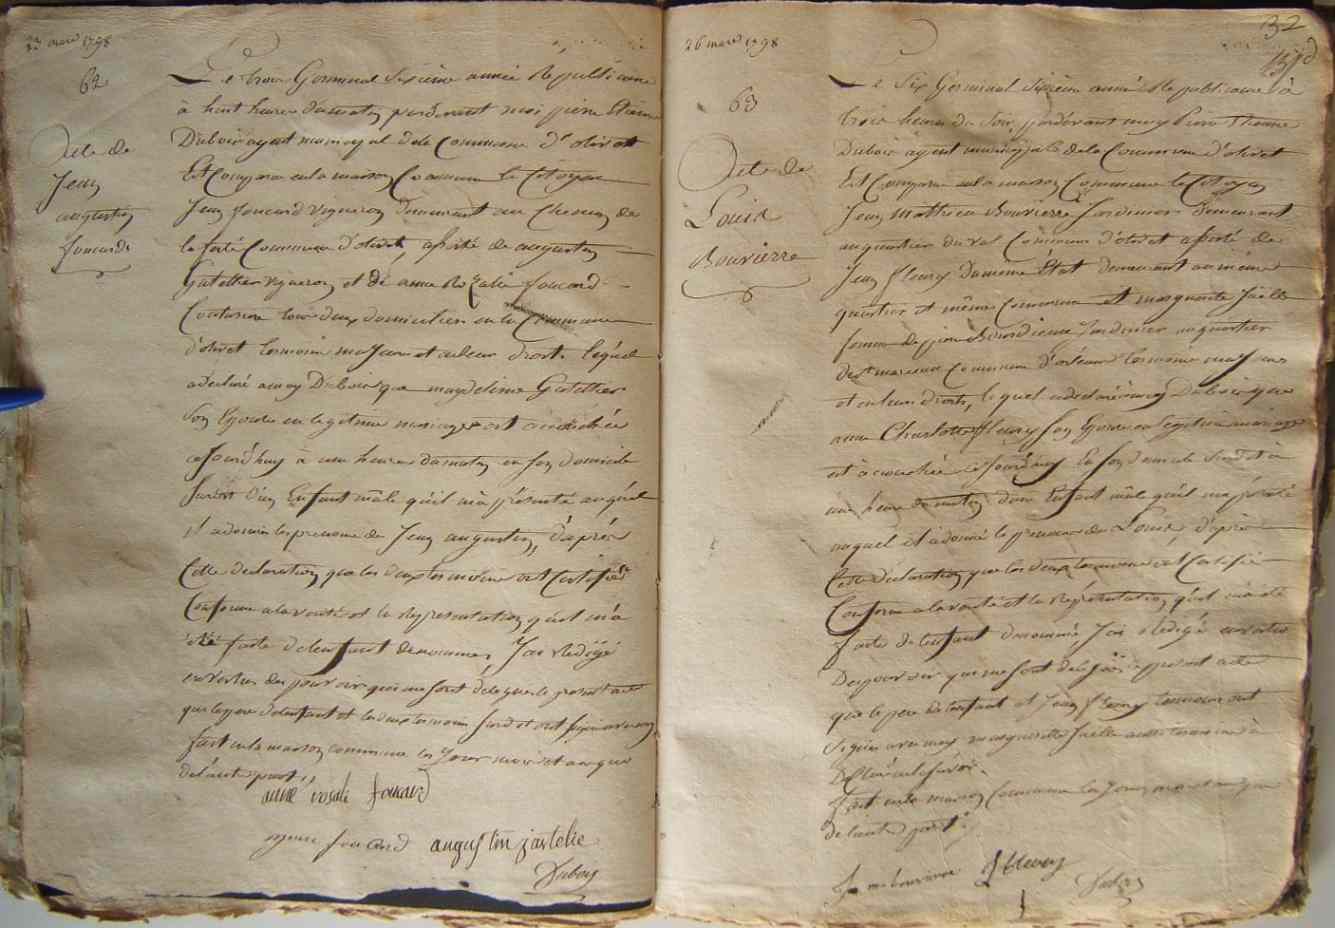 23 mars 1798
62
Acte de
Jean
augustin
foucard
Le trois Germinal Sixieme année Republicaine
à huit heures du matin pardevant moi pierre Etienne
Dubois agent municipal de la Commune d'olivet
Est Comparu en la maison Commune le Citoyen
Jean foucard vigneron demeurant au Chemin de
la ferté Commune d'olivet, assisté de augustin
Gatellier vigneron et de anne Rozalie foucard
Couturiere tous deux domiciliés en la Commune
d'olivet temoins majeurs et au leur droits lequel
a declaré a moy Dubois que magdeleine Gatellier
son Epouse en legitime mariage est accouchée
cejourd'huy à une heure du matin en son domicile
d'un Enfant mâle qu'il m'a présenté auquel
il a donné les prenoms de Jean augustin, d'après
Cette declaration que les deux temoins ont Certifié
Conforme a la verité et la Representation qui m'a
été faite de l'enfant denommé, J'ai Redigé
en vertu des pouvoirs qui me sont delegués le present acte
que le pere de l'enfant et les deux temoins ont signé avec moy
fait en la maison commune les jours mois et an que
de l'autre part,,
anne rosalie foucard
foucard augustin gatelie
Dubois
26 mars 1798
32
63
Acte de
Louis
Bouvierre
Le Six Germinal Sixième année Republicaine à
trois heures du Soir, pardevant moy Pierre Etienne
Dubois agent municipale de la Commune d'olivet
Est Comparu en la maison Commune le Citoyen
Jean mathieu Bouvierre Jardinier Demeurant
au quartier du val Commune d'olivet assisté de
Jean fleury du meme État demeurant au même
quartier et même Commune et marguerite
femme de pierre Jardinier au quartier
de St marceau Commune d'orleans temoins majeurs
et au leurs droits, lequel a declaré à moy Dubois que
anne Charlotte fleury son Epouse en legitime mariage
est accouchée cejourd'huy En son domicile
une heure du matin d'un Enfant mâle qu'il m'a présenté
auquel il a donné le prenom de Louis, d'après
Cette déclaration que les deux temoins ont Certifié
Conforme a la verité et la Représentation qui m'a été
faite de l'enfant denommé J'ai Redigé en vertu
Des pouvoirs qui me sont delegués le present acte
que le pere de l'enfant et Jean fleury temoin ont
Signé avec moy marguerite aussi temoin a
Declaré ne le savoir.
Fait en la maison Commune les jours mois et an que
de l'autre part.
J m bouvierre J fleury
Dubois